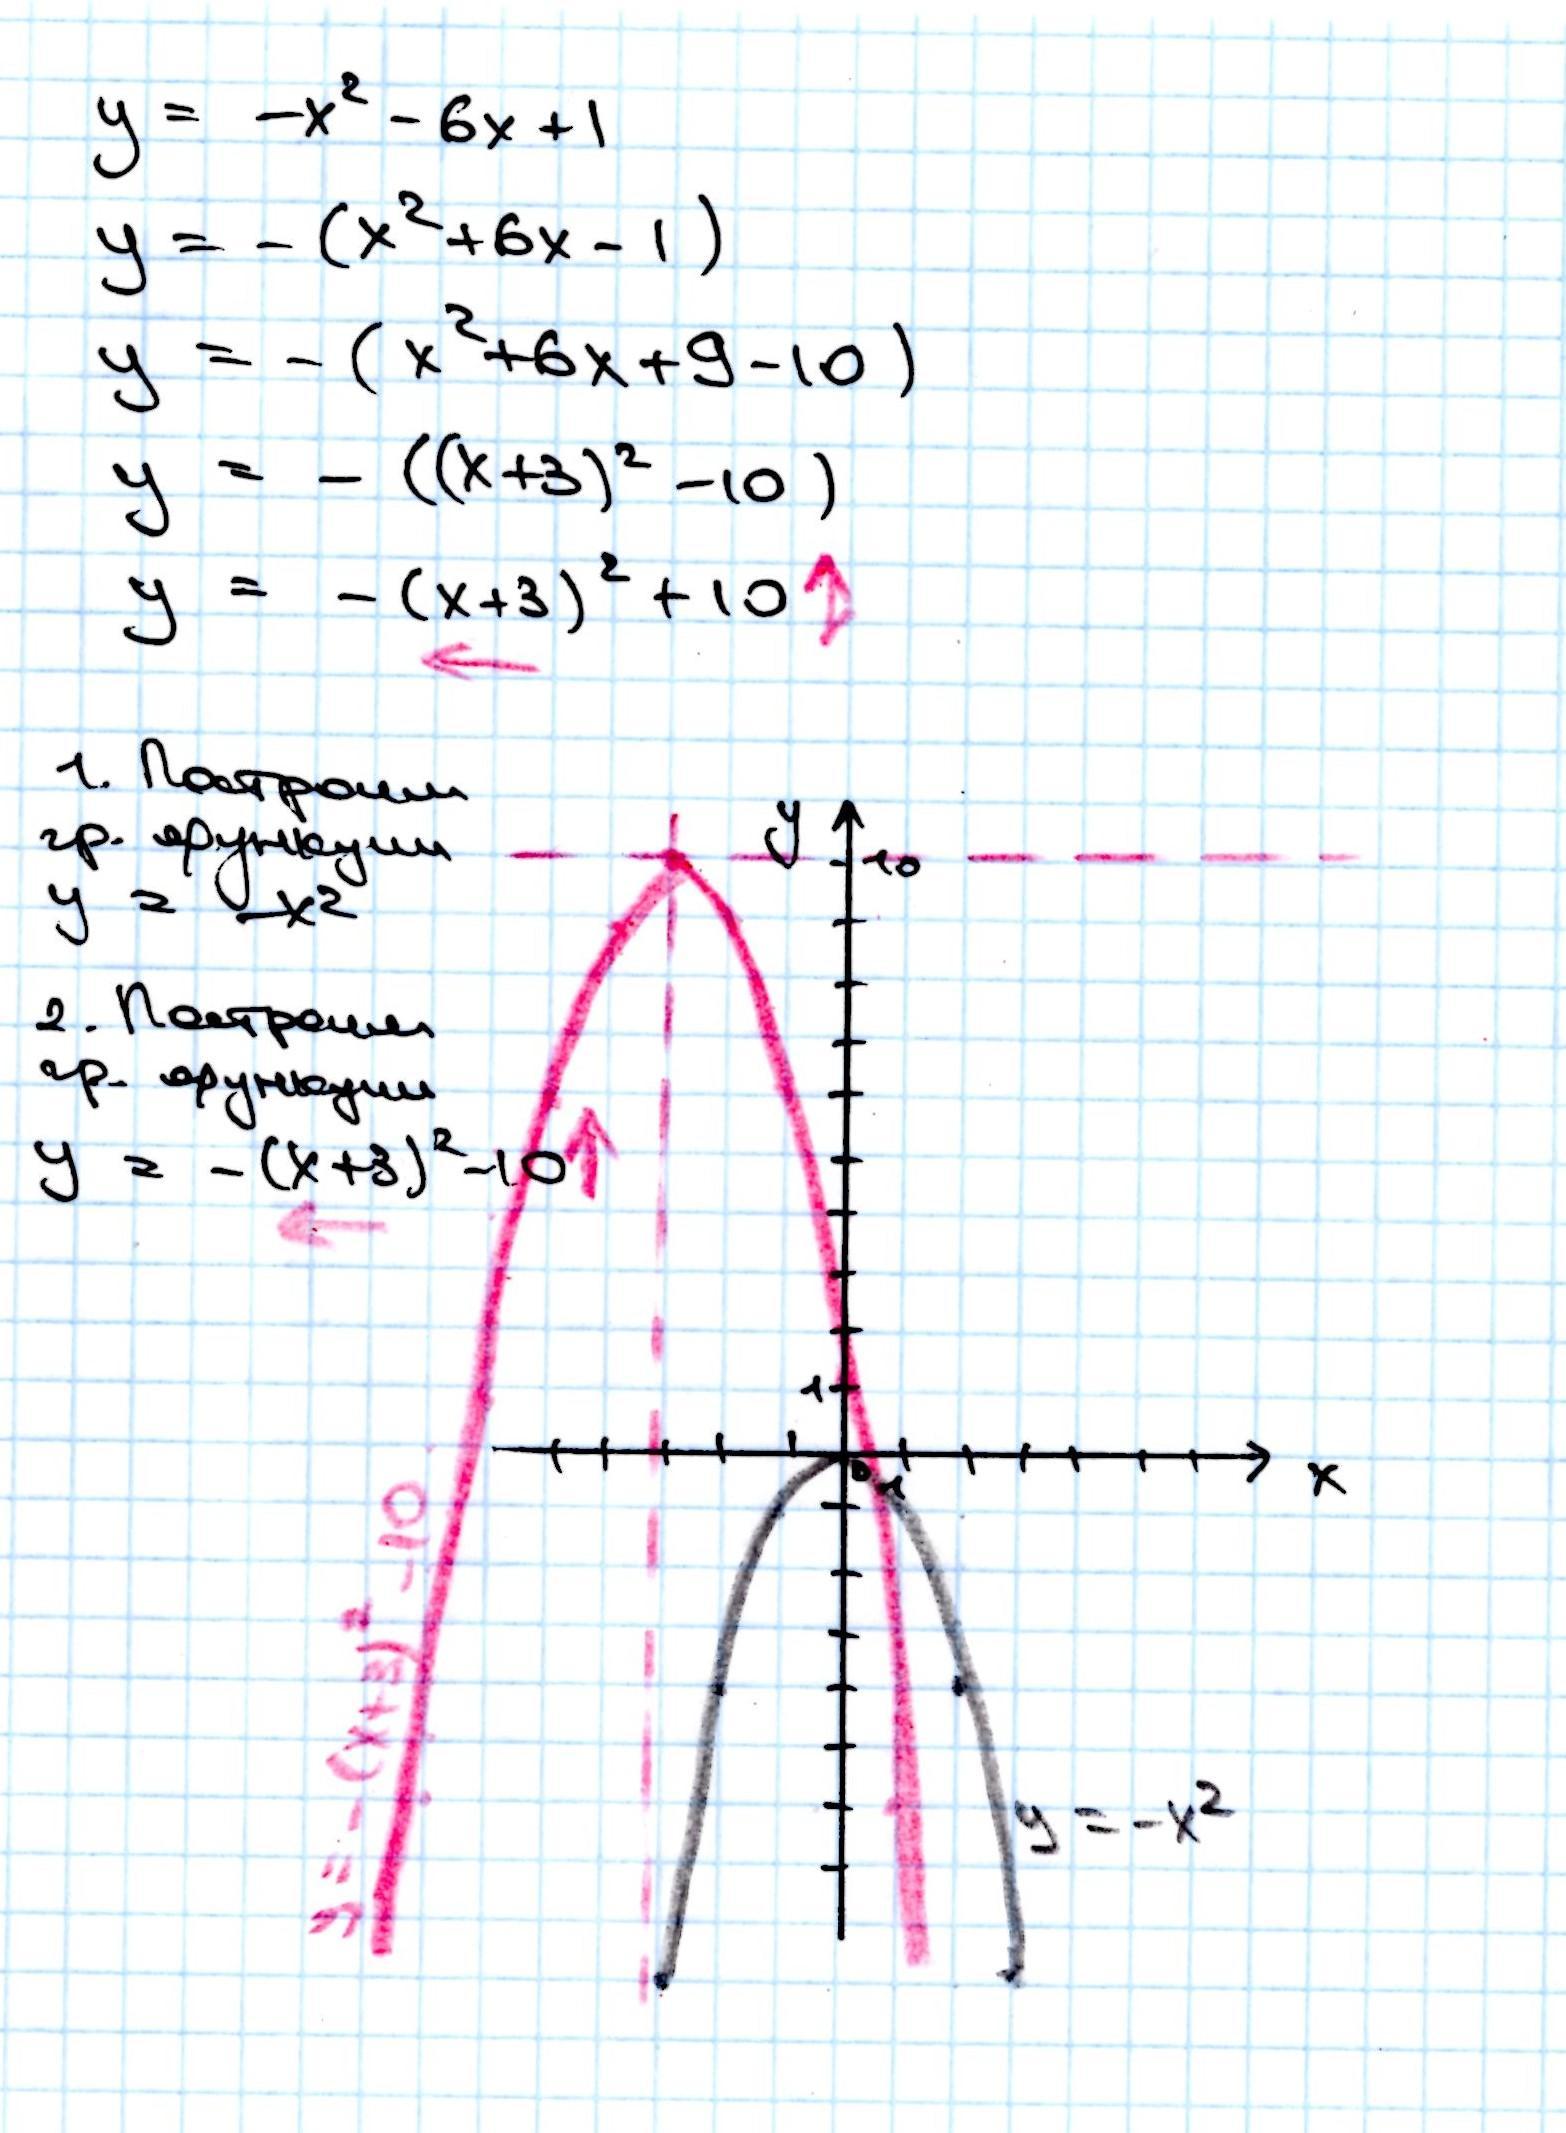 y = -x² - 6x + 1
y = - (x² + 6x - 1)
y = - (x² + 6x + 9 - 10)
y = - ((x+3)² - 10)
y = - (x+3)² + 10
1. Построим
гр. функции
y = -x²
2. Построим
гр. функции
y = - (x+3)² - 10
y
10
1
0
1
x
y = - (x+3)² - 10
y = -x²